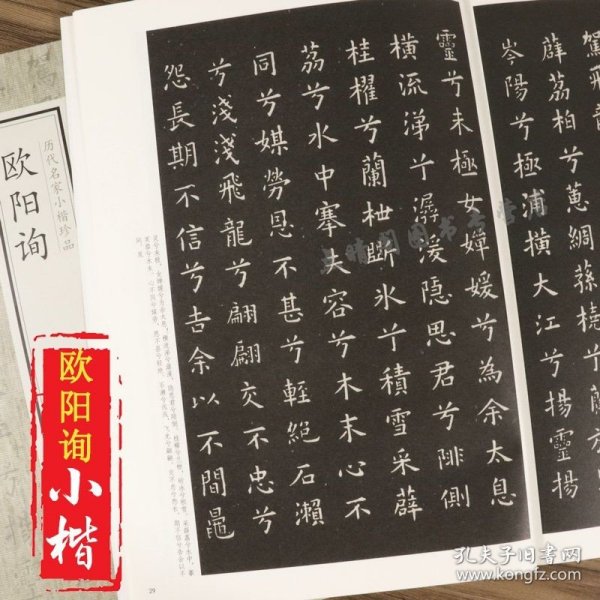 薜荔柏兮蕙綢蓀橈兮
岑陽兮極浦橫大江兮揚靈揚
靈兮未極女嬋媛兮為余太息
橫流涕兮潺湲隱思君兮陫側
桂櫂兮蘭枻斲氷兮積雪采薜
荔兮水中搴芙容兮木末心不
同兮媒勞恩不甚兮輕絕石瀨
兮淺淺飛龍兮翩翩交不忠兮
怨長期不信兮告余以不間鼂
29
历代名家小楷珍品
欧阳询
欧阳询
小楷
孔夫子旧书网
www.kongfz.com